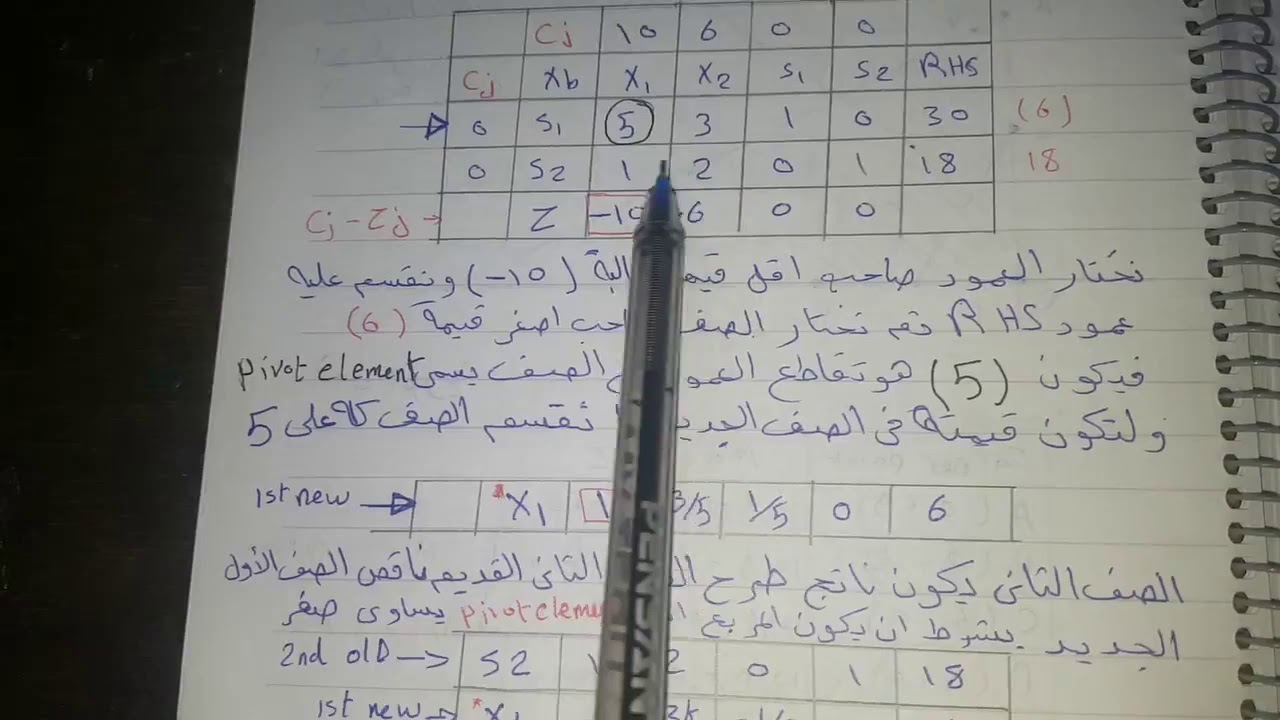 Cj 10 6 0 0
Cj Xb X1 X2 S1 S2 RHS
0 S1 5 3 1 0 30 (6)
0 S2 1 2 0 1 18 18
Cj - Zj → Z -10 -6 0 0
نختار العمود صاحب اقل قيمة (-10) ونقسم عليه
عمود RHS ثم نختار الصف صاحب اصغر قيمة (6)
فيكون (5) هو تقاطع العمود الصف يسمى pivot element
ولتكون قيمته فى الصف الجديد نقسم الصف كله على 5
1st new → X1 1 3/5 1/5 0 6
الصف الثانى يكون ناتج طرح الثانى القديم ناقص الصف الأول
الجديد بشرط ان يكون المربع pivot element يساوى صفر
2nd old → S2 1 2 0 1 18
1st new → X1
PENSAN